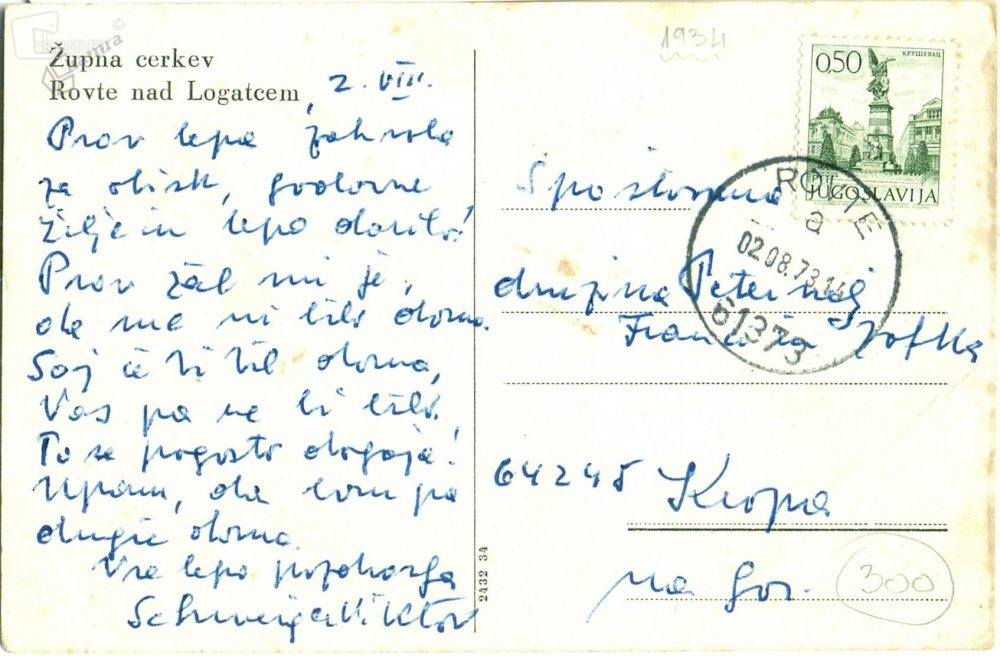 Župna cerkev
Rovte nad Logatcem
2. VIII.
Prav lepa zahvala
za obisk, godovne
želje in lepo darilo!
Prav žal mi je,
da me ni bilo doma.
Saj če bi bil doma,
Vas pa ne bi bilo.
To se pogosto dogaja!
Upam, da bom pa
drugič doma.
Vse lepo pozdravlja
Viktor
2432 34
1934
0,50
КРУШЕВАЦ
JUGOSLAVIJA
ROVTE
a
02.08.73.14
61373
Spoštovana
družina
64245 Kropa
na Gor.
300